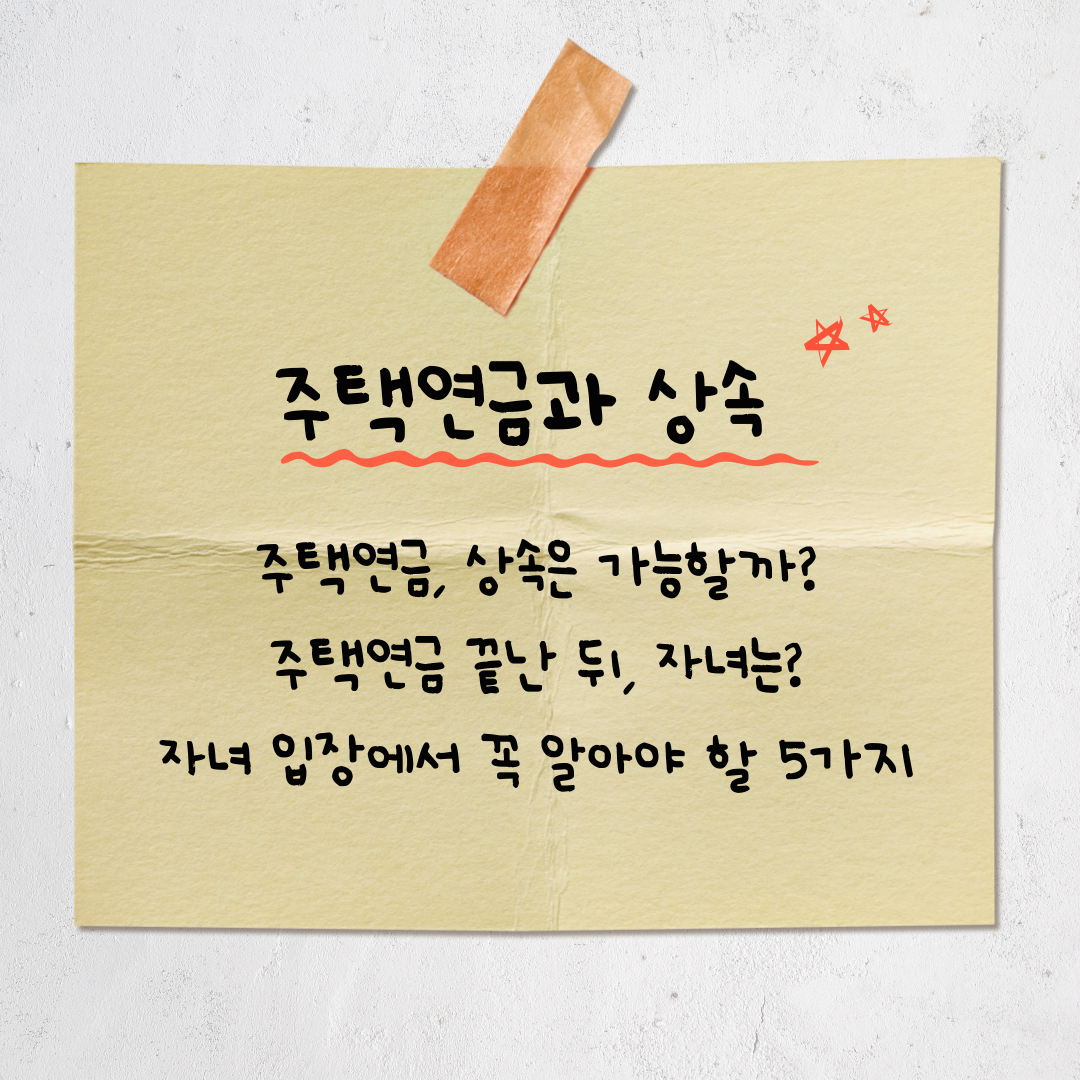 주택연금과 상속
주택연금, 상속은 가능할까?
주택연금 끝난 뒤, 자녀는?
자녀 입장에서 꼭 알아야 할 5가지